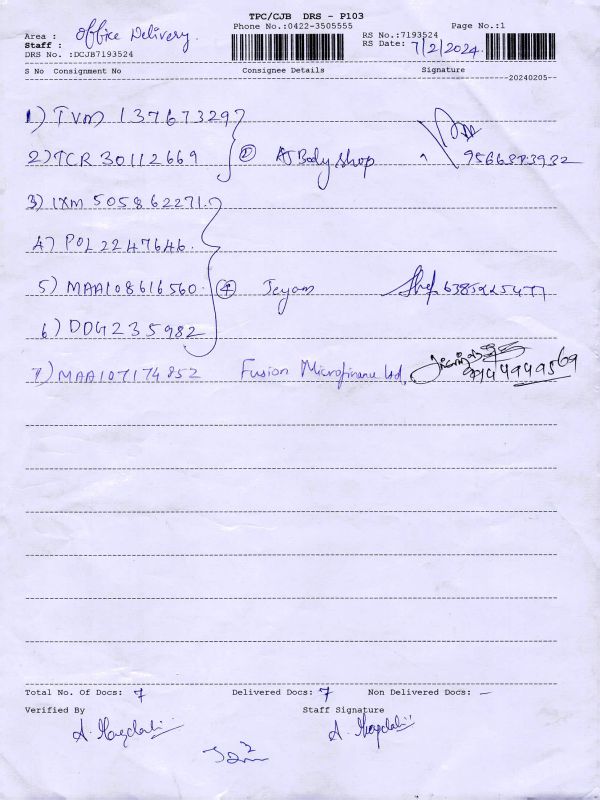 TPC/CJB DRS - P103
Phone No.:0422-3505555
Page No.:1
Area : Office Delivery
Staff :
DRS No. :DCJB7193524
RS No.:7193524
RS Date: 7/2/2024
S No Consignment No Consignee Details Signature
20240205
1) TVM 137673297
2) TCR 30112669 ② AJ Body Shop
3) IXM 505862271
4) POL 2247646
5) MAA108616560 ④ Jeyam
6) DDG235982
7) MAA107174852 Fusion Microfinance Ltd,
Total No. Of Docs: 7 Delivered Docs: 7 Non Delivered Docs: —
Verified By Staff Signature